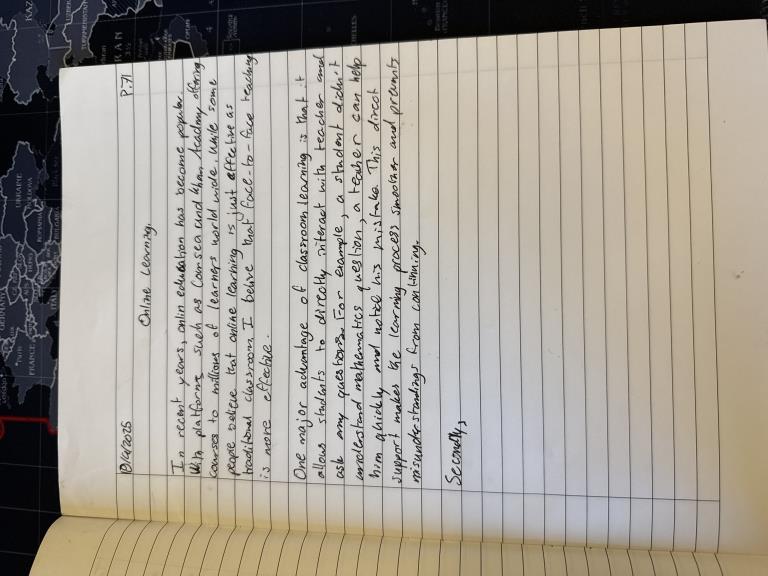 18/6/2025
P.71
Online Learning.
In recent years, onlin education has become popular.
With platforms such as Coursea and Khan Academy offering
courses to millions of learners world wide. While some
people believe that online learning is just effective as
traditional classroom, I belive that face-to-face teaching
is more effective.
One major advantage of classroom learning is that it
allows students to directly interact with teacher and
ask any questions. For example, a student didn't
understand mathematics question, a teacher can help
him quickly and noted his mistake. This direct
support makes the learning process smoother and prevents
misunderstandings from continuing.
Secondly,
UKRAINE
ROMANIA
FRANCE